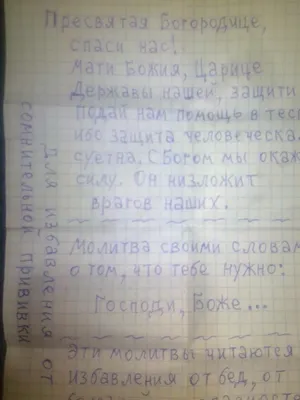 Пресвятая Богородице,
спаси нас!
Мати Божия, Царице
Державы нашей, защити
подай нам помощь в тес
ибо защита человеческа
суетна. С Богом мы окаж
силу. Он низложит
врагов наших.
Молитва своими словам
о том, что тебе нужно:
Господи, Боже...
Эти молитвы читаются
избавления от бед, от
Для избавления от
сомнительной прививки